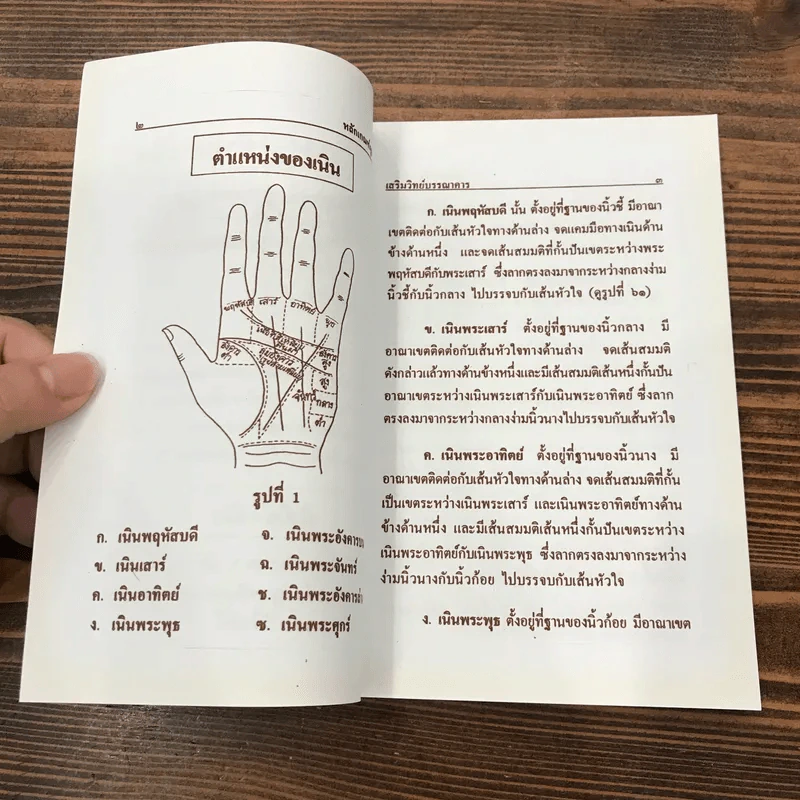 ๒
ตำแหน่งของเนิน
พฤหัสบดี เสาร์ อาทิตย์ พุธ
อังคาร
สูง
สูง
จันทร์ กลาง
ต่ำ
ต่ำ
รูปที่ 1
ก. เนินพฤหัสบดี
ข. เนินเสาร์
ค. เนินอาทิตย์
ง. เนินพระพุธ
จ. เนินพระอังคาร
ฉ. เนินพระจันทร์
ช. เนินพระอังคาร
ซ. เนินพระศุกร์
เสริมวิทย์บรรณาคาร ๓
ก. เนินพฤหัสบดี นั้น ตั้งอยู่ที่ฐานของนิ้วชี้ มีอาณา
เขตติดต่อกับเส้นหัวใจทางด้านล่าง จดแคมมือทางเนินด้าน
ข้างด้านหนึ่ง และจดเส้นสมมติที่กั้นปันเขตระหว่างพระ
พฤหัสบดีกับพระเสาร์ ซึ่งลากตรงลงมาจากระหว่างกลางง่าม
นิ้วชี้กับนิ้วกลาง ไปบรรจบกับเส้นหัวใจ (ดูรูปที่ ๖๑)
ข. เนินพระเสาร์ ตั้งอยู่ที่ฐานของนิ้วกลาง มี
อาณาเขตติดต่อกับเส้นหัวใจทางด้านล่าง จดเส้นสมมติ
ดังกล่าวแล้วทางด้านข้างหนึ่งและมีเส้นสมมติเส้นหนึ่งกั้นปัน
อาณาเขตระหว่างเนินพระเสาร์กับเนินพระอาทิตย์ ซึ่งลาก
ตรงลงมาจากระหว่างกลางง่ามนิ้วนางไปบรรจบกับเส้นหัวใจ
ค. เนินพระอาทิตย์ ตั้งอยู่ที่ฐานของนิ้วนาง มี
อาณาเขตติดต่อกับเส้นหัวใจทางด้านล่าง จดเส้นสมมติที่กั้น
เป็นเขตระหว่างเนินพระเสาร์ และเนินพระอาทิตย์ทางด้าน
ข้างด้านหนึ่ง และมีเส้นสมมติเส้นหนึ่งกั้นปันเขตระหว่าง
เนินพระอาทิตย์กับเนินพระพุธ ซึ่งลากตรงลงมาจากระหว่าง
ง่ามนิ้วนางกับนิ้วก้อย ไปบรรจบกับเส้นหัวใจ
ง. เนินพระพุธ ตั้งอยู่ที่ฐานของนิ้วก้อย มีอาณาเขต